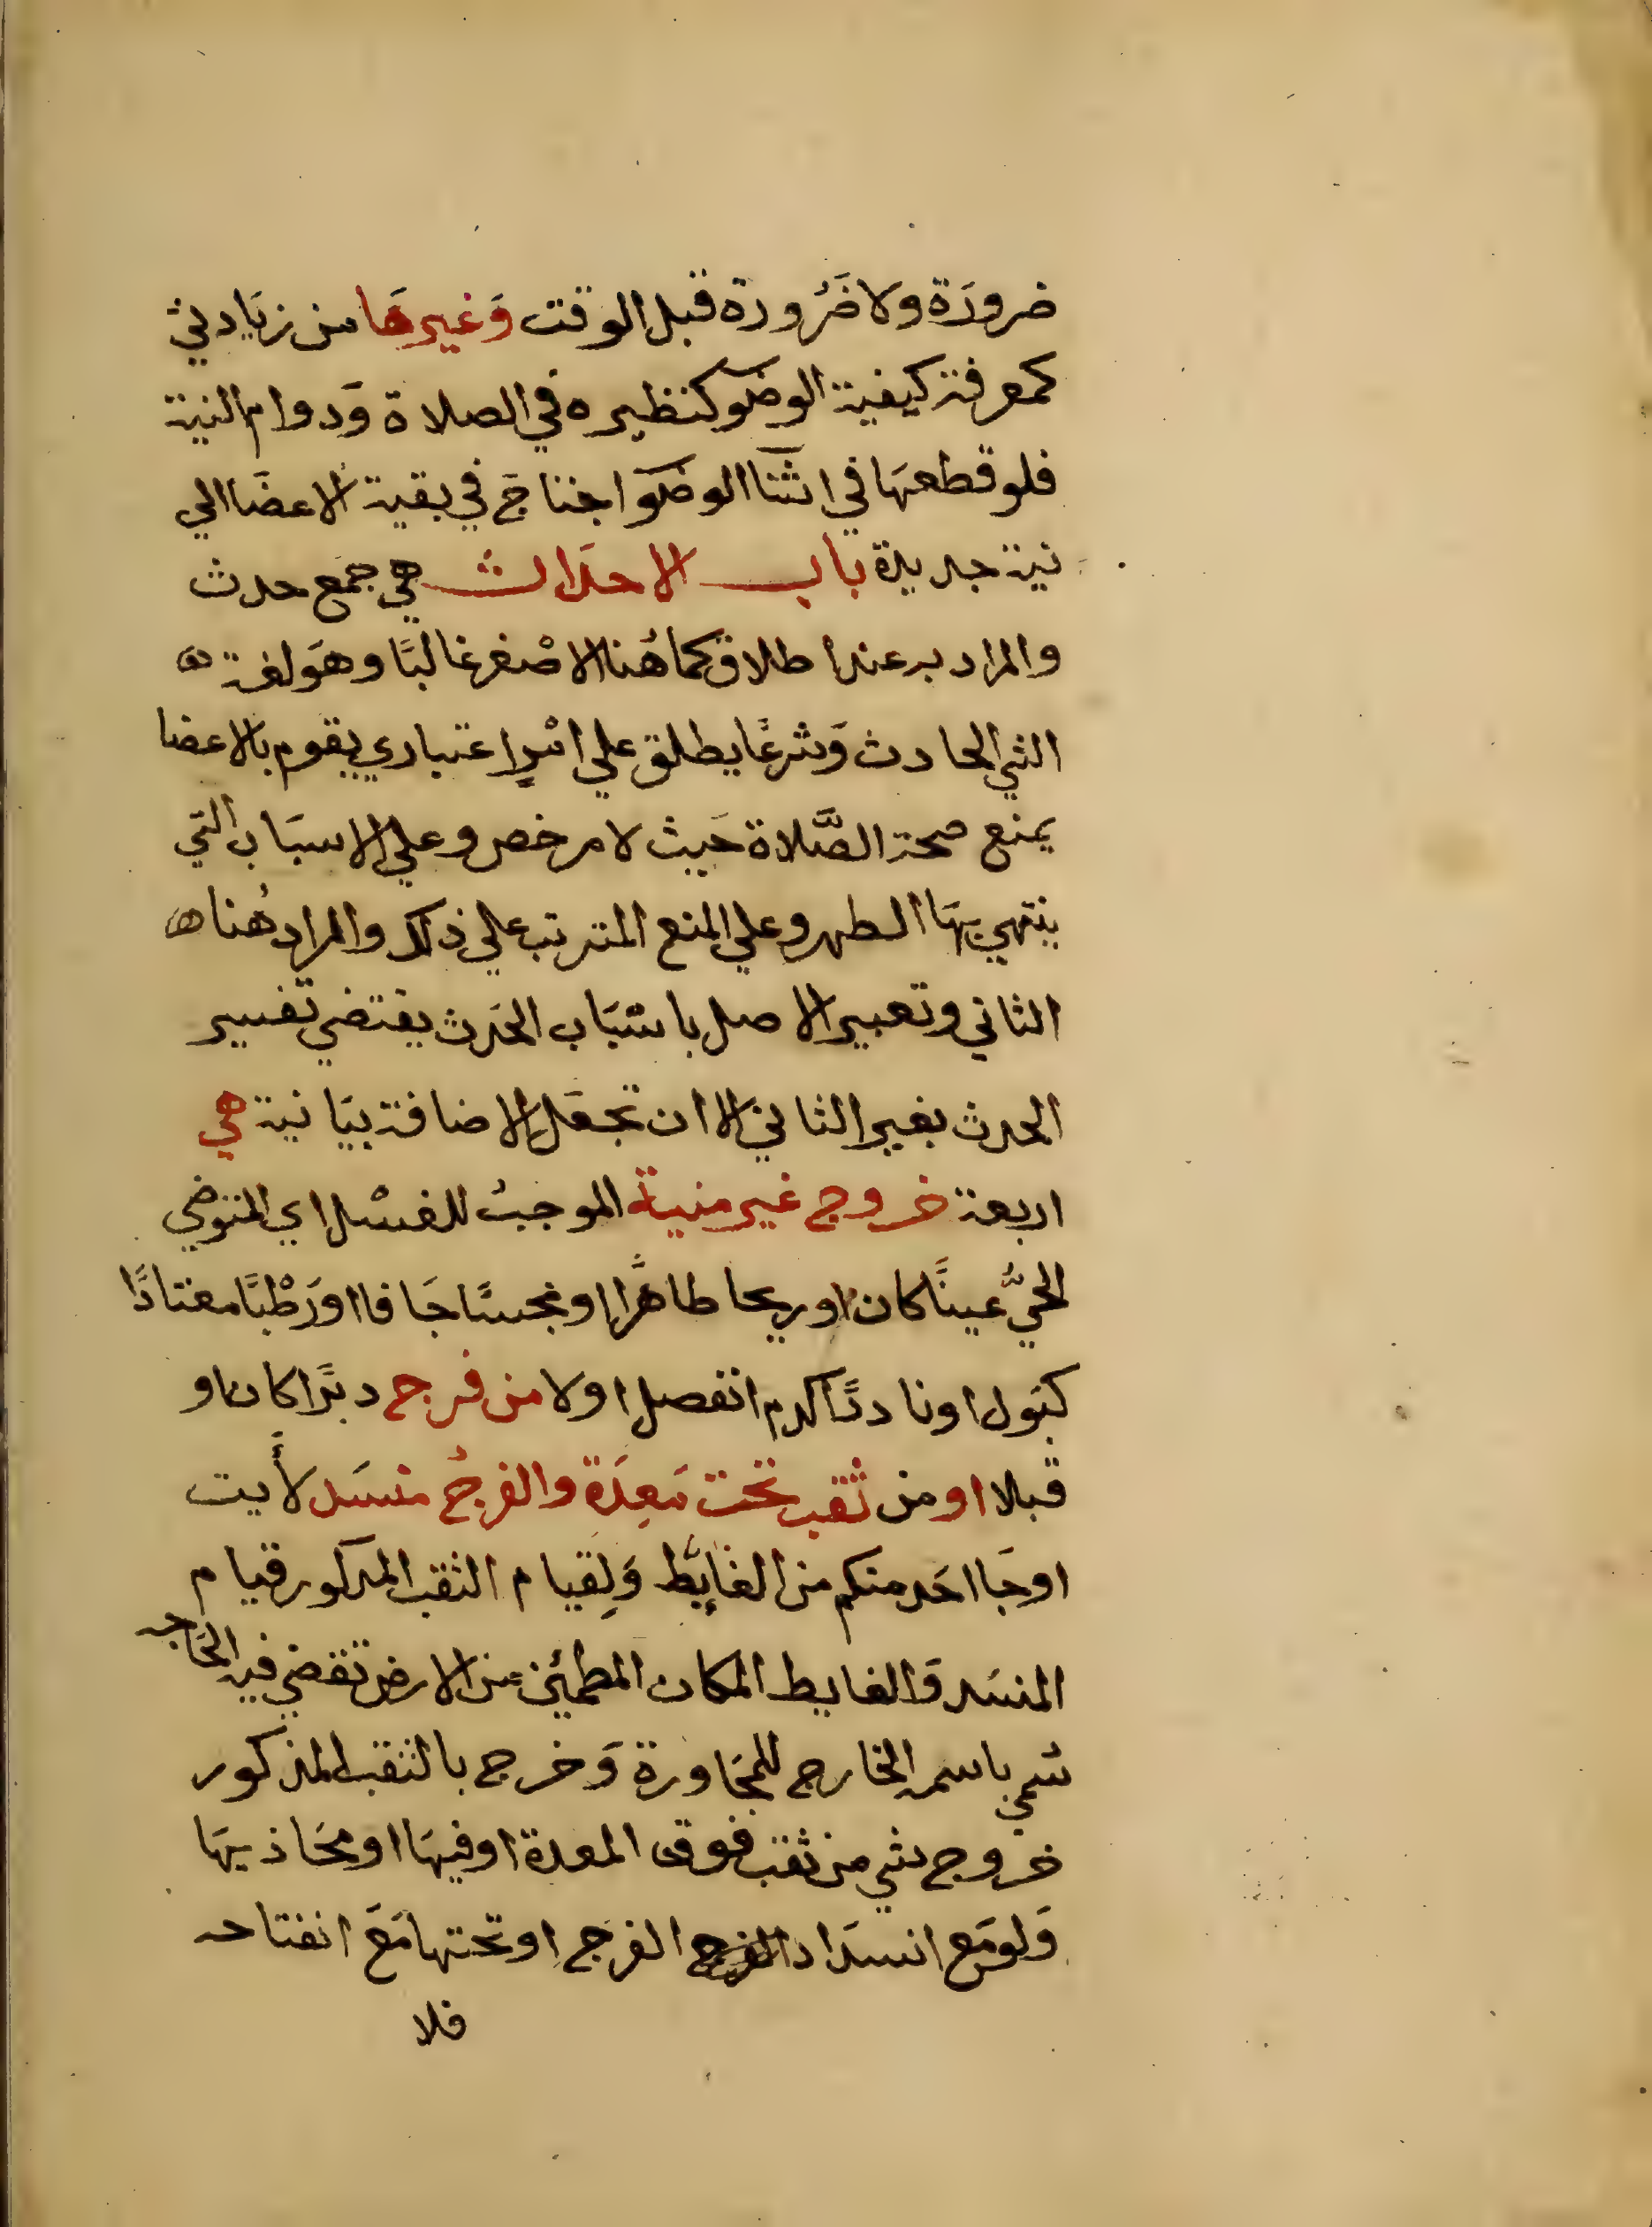 ضرورَة ولا ضَرُورة قبل الوقت وَغيرهَا من زيَادتي
كمعرفة كيفية الوضو كنظيره في الصلاة وَدوام النية
فلو قطعهَا في اثنآ الوضو احتاج في بقية الاعضَا الي
نية جديدة باب الاحدَاث هي جمع حدث
والمراد به عند اطلاقه كما هُنا الاصْغر غالبًا وهوَ لغة ه
الشي الحادث وَشرعًا يطلق علي امْرٍ اعتباري يقوم بالاعضا
يمنع صحة الصَّلاة حَيث لا مرخص وعلي الاسبَاب التي
ينتهي بهَا الطهر وعلي المنع المترتب علي ذلك والمراد هُنا ه
الثاني وتعبير الاصل باسْبَاب الحَدث يقتضي تفسير
الحدث بغير الثاني الا ان تجعَل الاضافة بيَانية هي
اربعة خروج غير منيه الموجبُ للغسْل اي المتوضي
الحيُّ عينًا كان او ريحا طاهرًا او نجسًا جَافا او رَطْبًا معتادًا
كبَول او نادرًا كدم انفصل او لا من فرج دبرًا كان او
قبلا او من ثقب تحت مَعِدَة والفرجُ منسَد لأيت
او جَا احَد منكم من الغَايِط وَلِقيام الثقب المذكور قيام
المنسَد وَالغايط المكان المطمئن من الارض تقضي فيه الحَاجه
سُمي باسمه الخارج للمجَاورة وَخرج بالثقب المذكور
خروج شي من ثقب فوق المعدة او فيهَا او محَاذيهَا
وَلو مَع انسدَاد الفرج الفرج او تحتها مَعَ انفتاحه
فلا